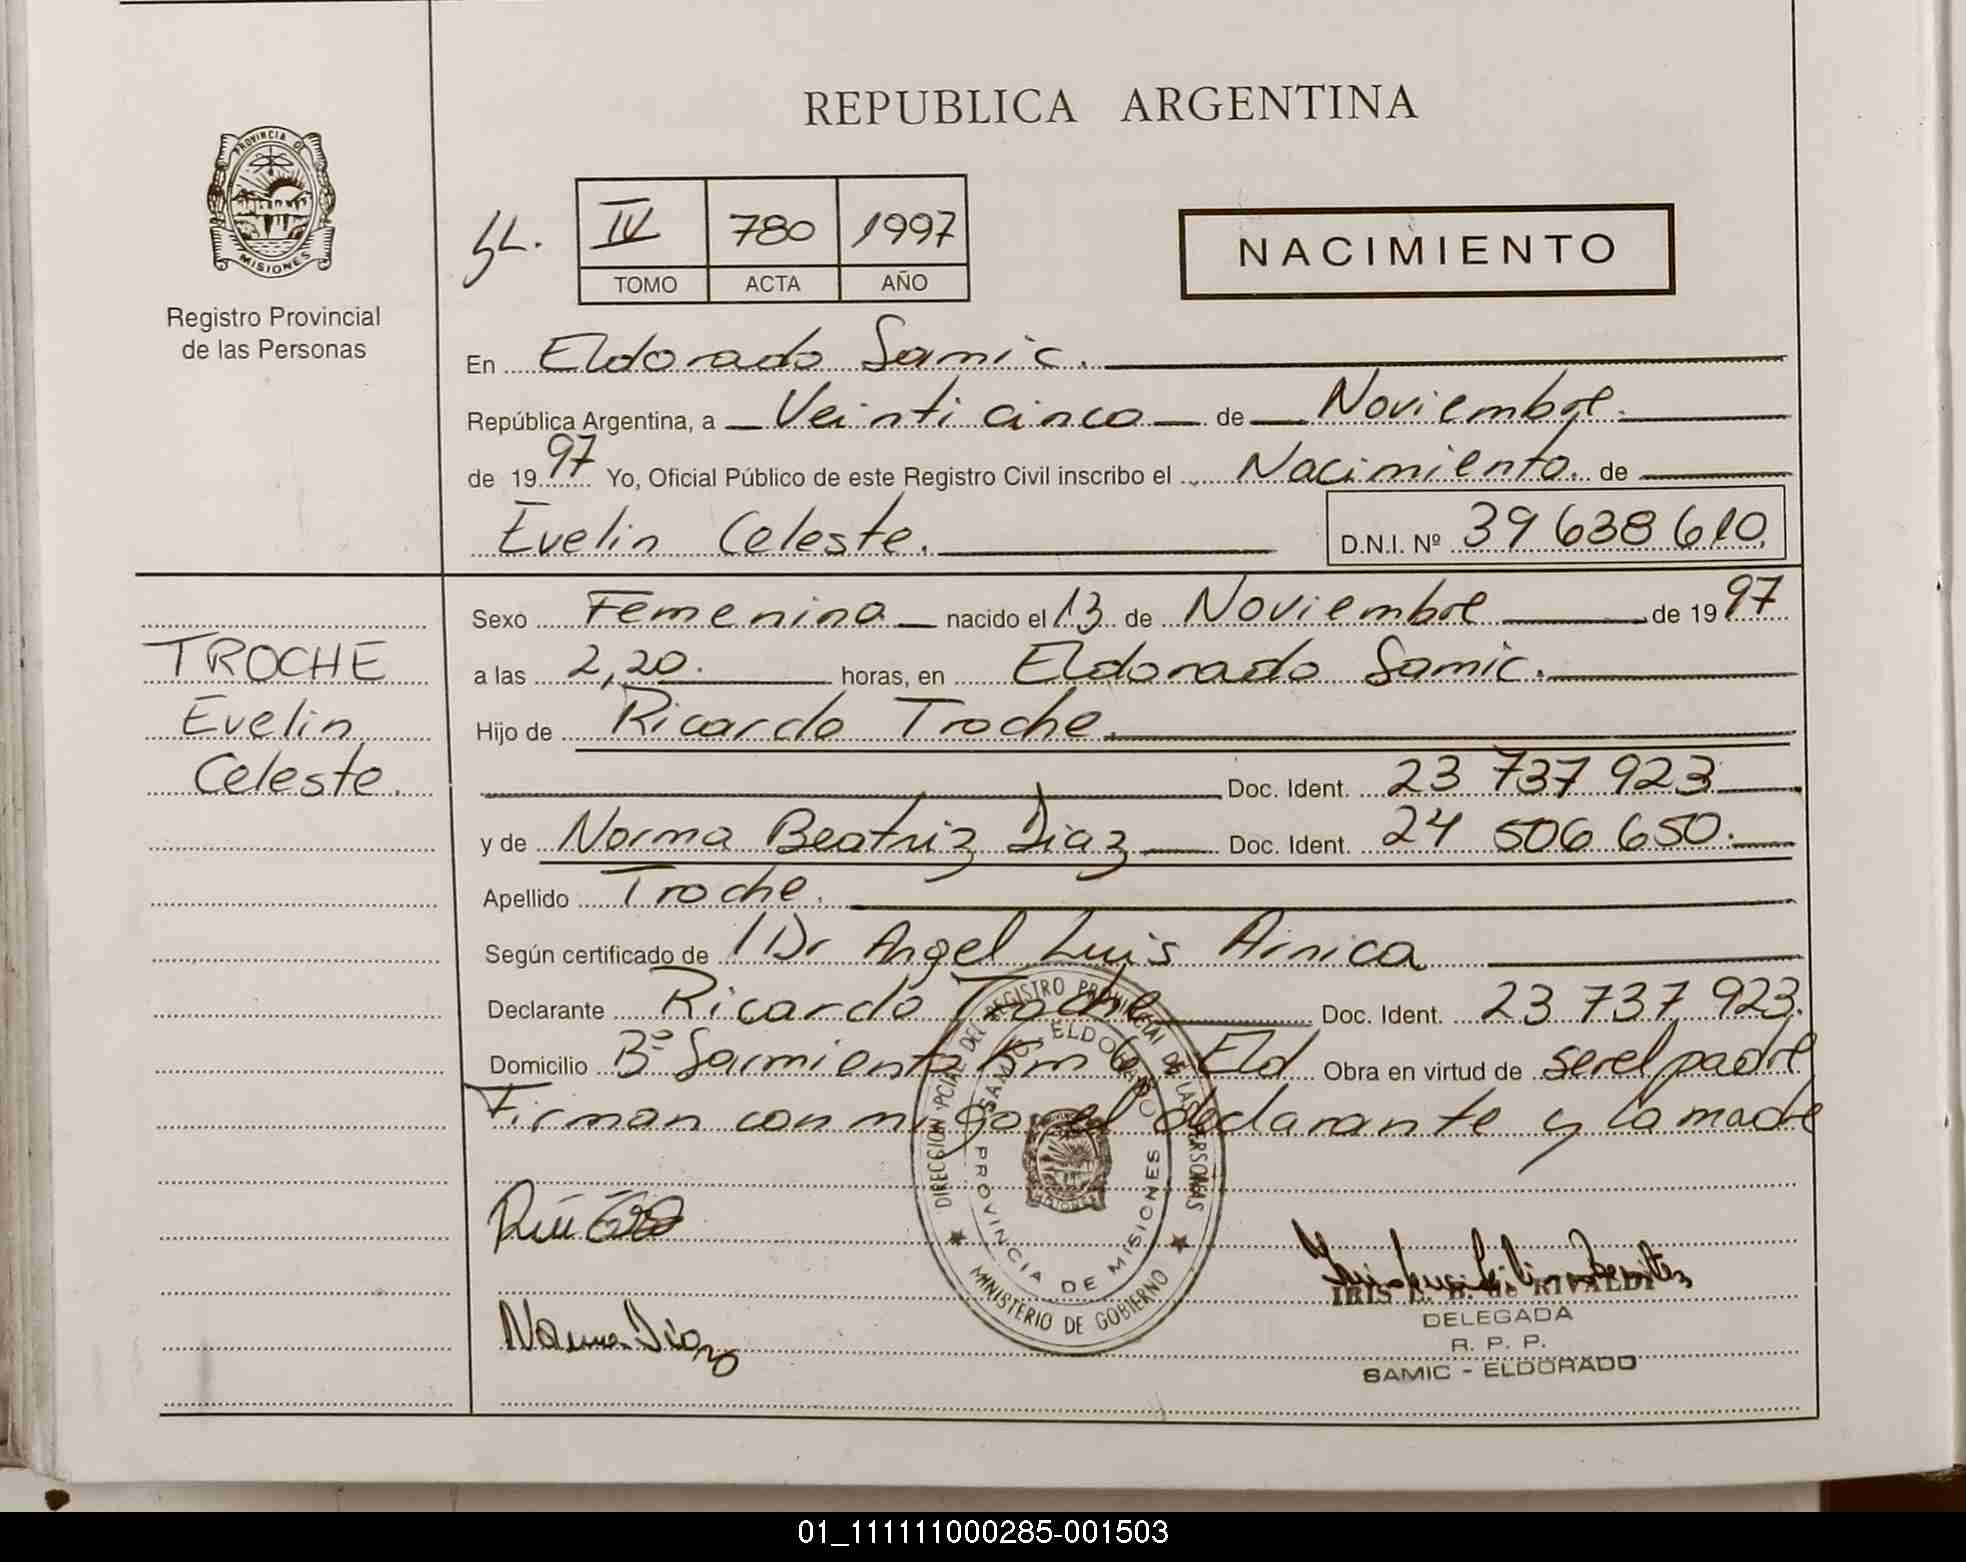 REPUBLICA ARGENTINA
PROVINCIA DE
MISIONES
Registro Provincial
de las Personas
IV 780 1997
TOMO ACTA AÑO
NACIMIENTO
En Eldorado Samic.
República Argentina, a Veinti cinco de Noviembre.
de 1997 Yo, Oficial Público de este Registro Civil inscribo el Nacimiento. de
Evelin Celeste. D.N.I. Nº 39 638 610
TROCHE
Evelin
Celeste.
Sexo Femenina nacido el 13 de Noviembre de 1997
a las 2,20. horas, en Eldorado Samic.
Hijo de Ricardo Troche.
Doc. Ident. 23 737 923
y de Norma Beatriz Diaz Doc. Ident. 24 506 650.
Apellido Troche.
Según certificado de Dr Angel Luis Arnica
Declarante Ricardo Troche Doc. Ident. 23 737 923.
Domicilio Bº Sarmiento Km 6 Eld Obra en virtud de ser el padre
Firman con migo el declarante y la madre
DIRECCION PCIAL DEL REGISTRO PROVINCIAL DE LAS PERSONAS
SAMIC - ELDORADO
PROVINCIA DE MISIONES
MINISTERIO DE GOBIERNO
Norma Diaz
DELEGADA
R. P. P.
SAMIC - ELDORADO
01_111111000285-001503